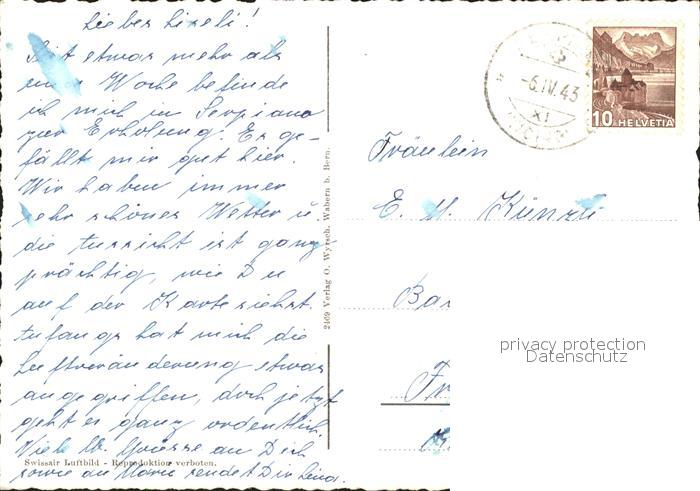 Liebes Liseli!
Seit etwas mehr als
einer Woche befinde
ich mich in Serpiano
zur Erholung. Es ge-
fällt mir gut hier.
Wir haben immer
sehr schönes Wetter u.
die Aussicht ist ganz
prächtig, wie Du
auf der Karte siehst.
Anfangs hat mich die
Luftveränderung etwas
angegriffen, doch jetzt
geht es ganz ordentlich.
Viele lb. Grüsse an Dich
sowie an Marie sendet Dir Lina.
Swissair Luftbild - Reproduktion verboten.
2469 Verlag O. Wyrsch, Wabern b. Bern.
-6.IV.43
XI
10 HELVETIA
Fräulein
E. M. Künzli
Ba
Fr
privacy protection
Datenschutz